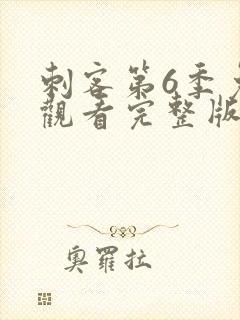 刺客第6季
觀看完整版
奧羅拉